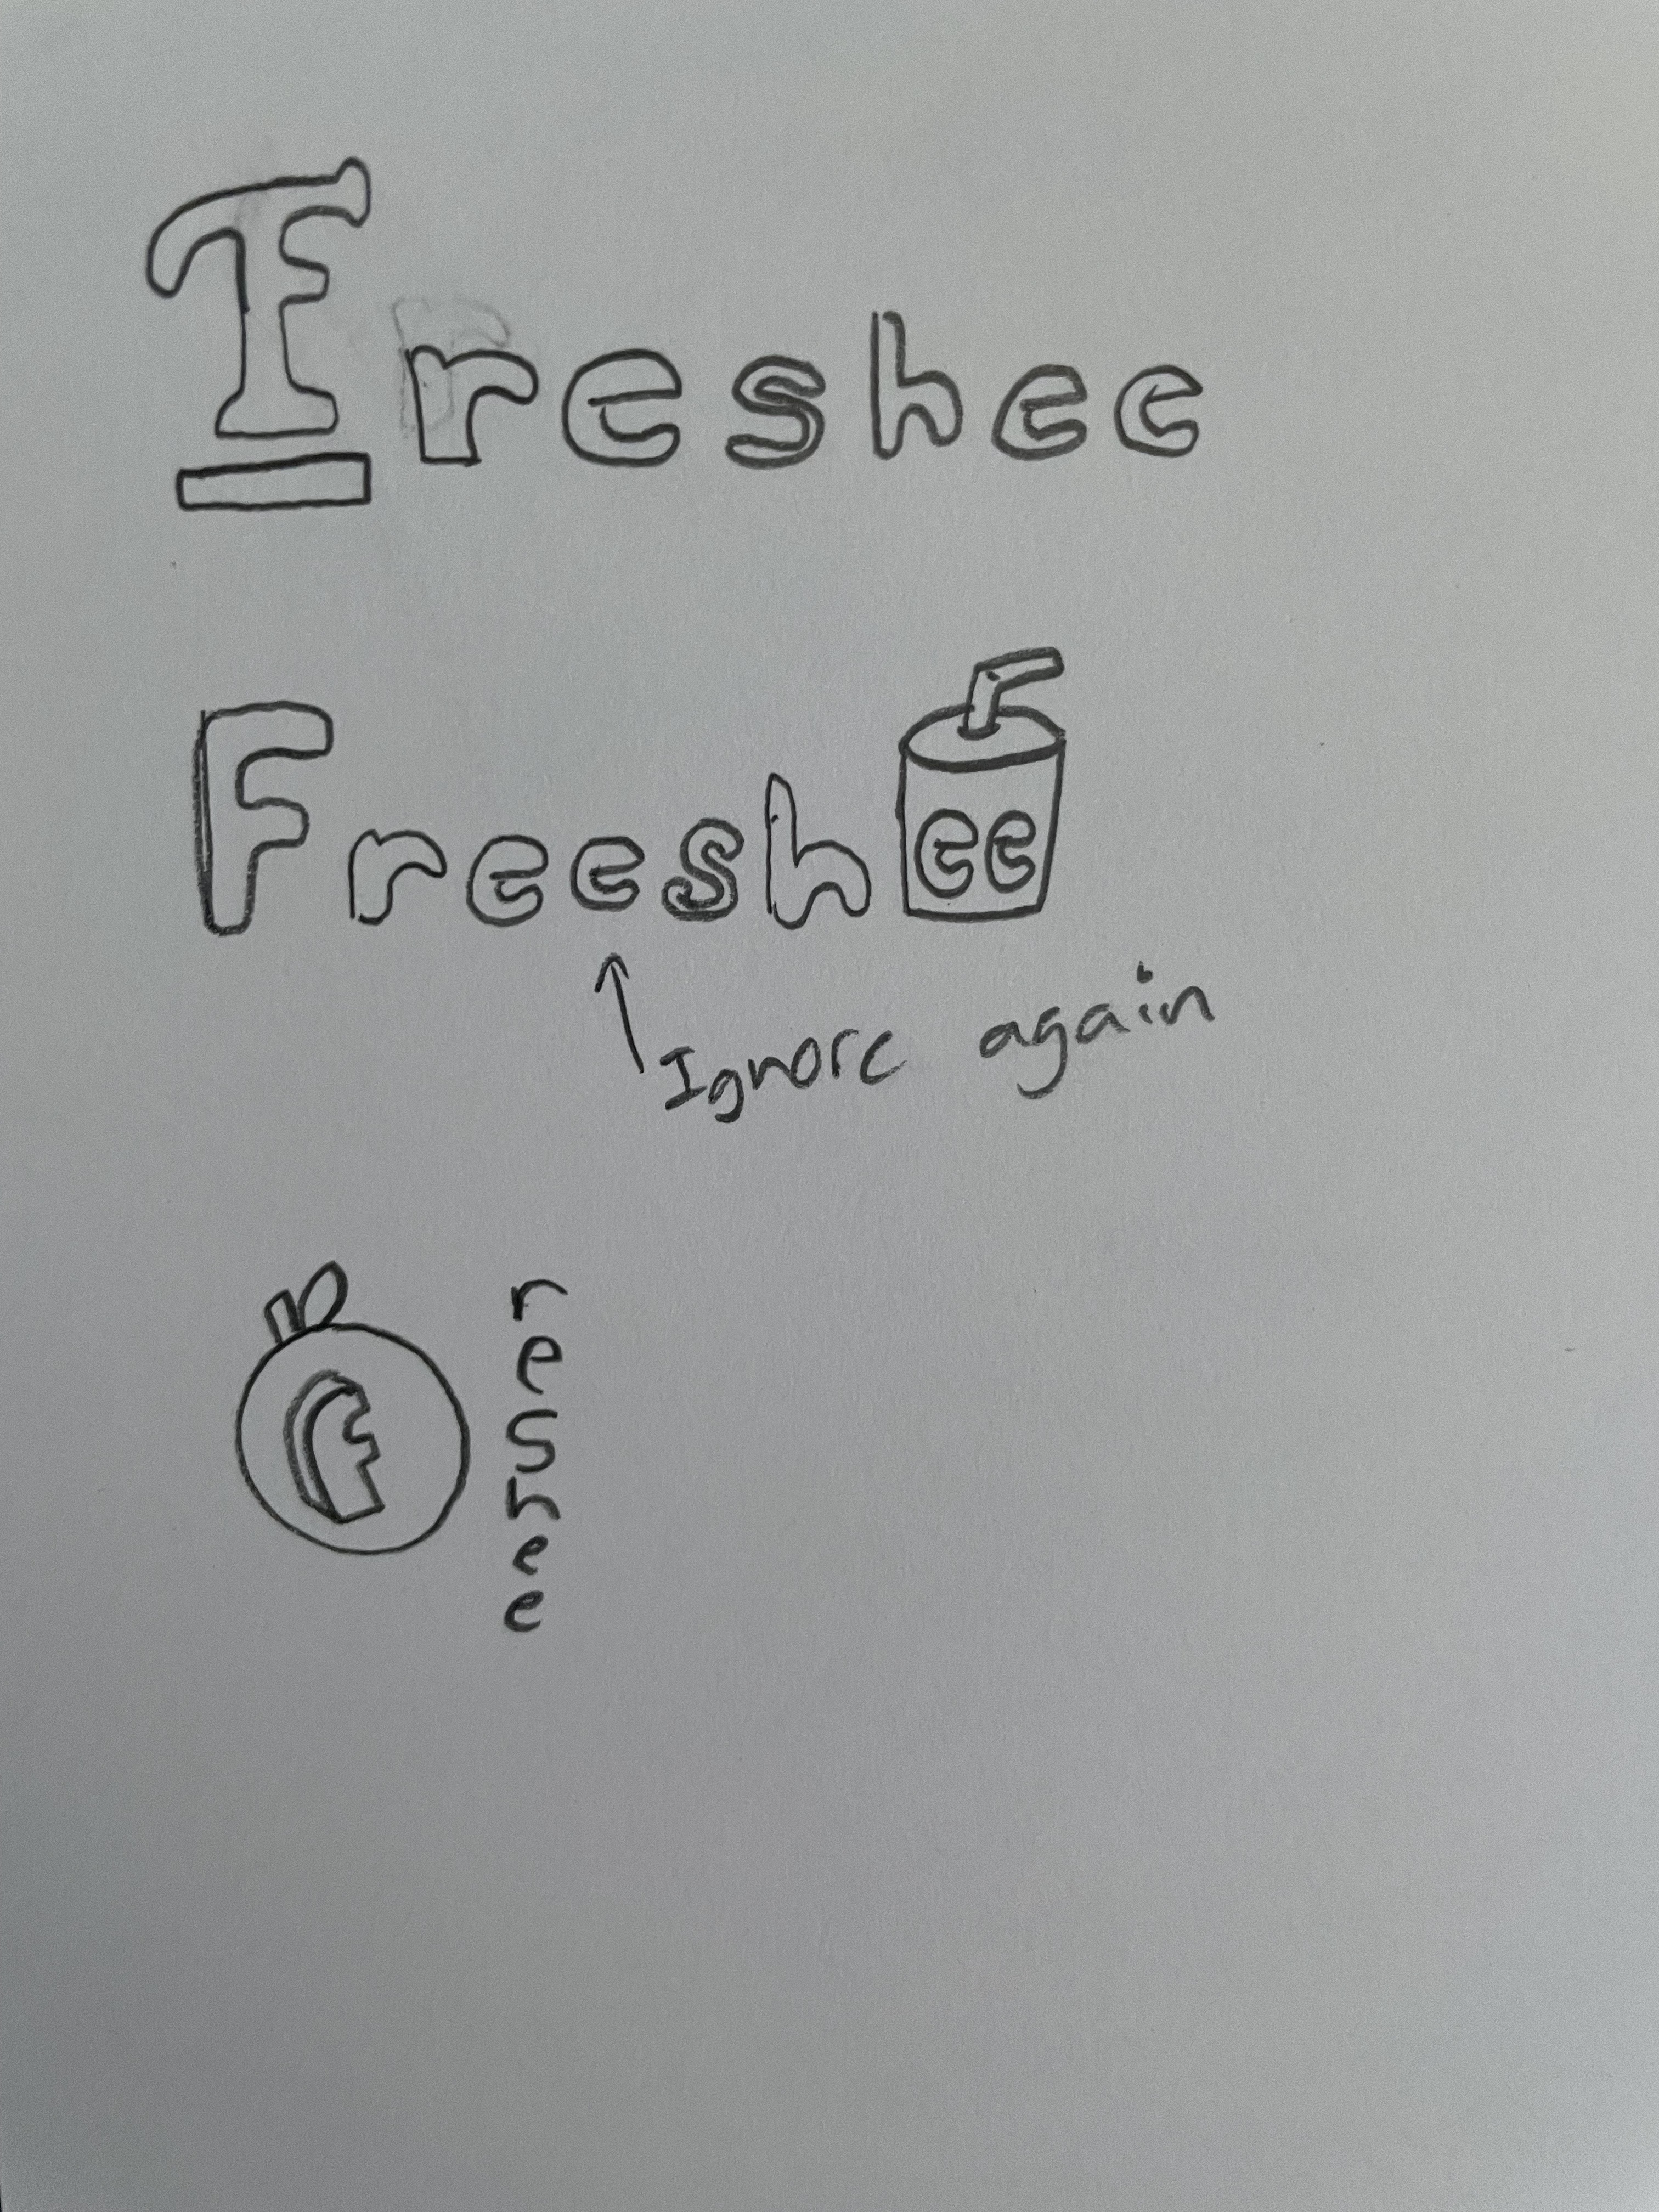 Freshee
Freeshee
Ignore again
F
r
e
s
h
e
e